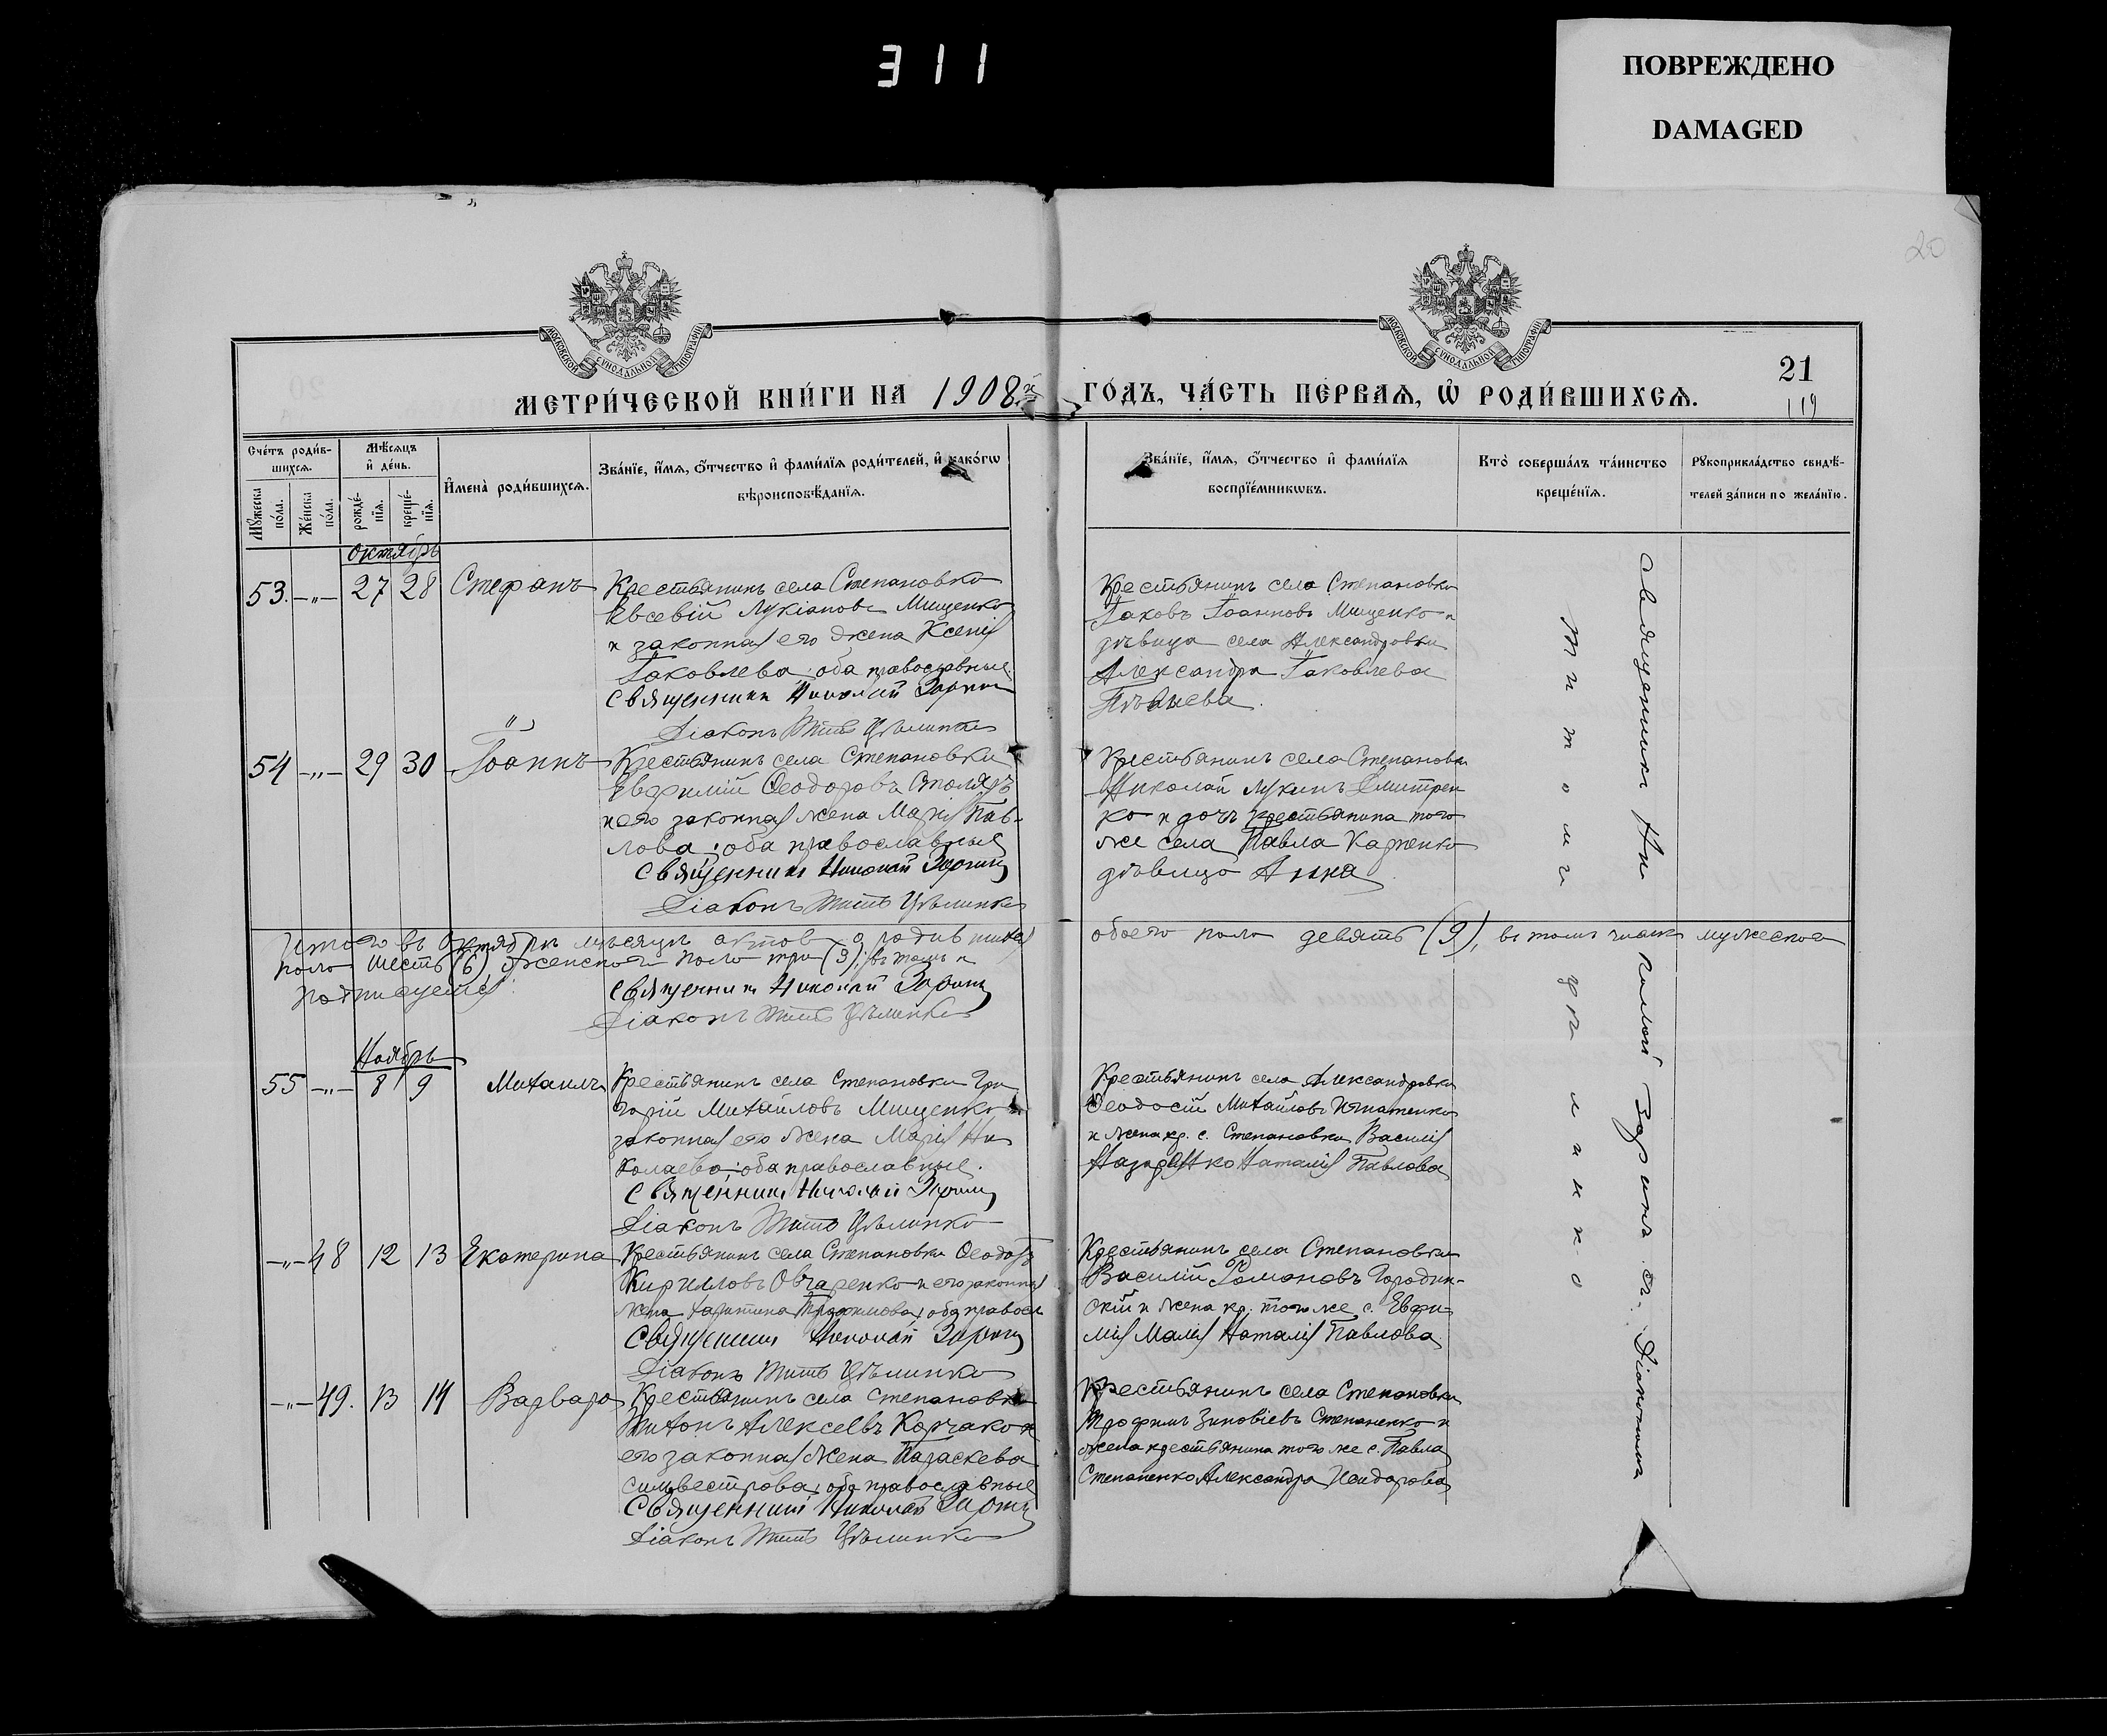 311
ПОВРЕЖДЕНО
DAMAGED
20
МОСКОВСКОЙ СУНОДАЛЬНОЙ ТИПОГРАФІИ
МОСКОВСКОЙ СУНОДАЛЬНОЙ ТИПОГРАФІИ
21
119
МЕТРИ́ЧЕСКОЙ КНИ́ГИ НА 1908.й ГО́ДЪ, ЧА́СТЬ ПЕ́РВАѦ, Ѡ҆ РОДИ́ВШИХСѦ.
Сче́тъ роди́в-
шихсѧ.
Мѣ́сѧцъ
и҆ де́нь.
И҆мена̀ роди́вшихсѧ.
Зва́нїе, и҆́мѧ, ѻ҆́тчество и҆ фами́лїѧ роди́телей, и҆ како́гѡ
вѣроисповѣ́данїѧ.
Зва́нїе, и҆́мѧ, ѻ҆́тчество и҆ фами́лїѧ
воспрїе́мникѡвъ.
Кто̀ соверша́лъ та́инство
креще́нїѧ.
Рꙋкоприкла́дство свидѣ́-
телей за́писи по жела́нїю.
Мꙋ́жеска
по́ла.
Же́нска
по́ла.
рожде́-
нїѧ.
креще́-
нїѧ.
Октябрь
53. -„- 27 28 Стефанъ
Крестьянинъ села Степановки
Евсевій Лукіановъ Мищенко
и законная его жена Ксенія
Іаковлева; оба православные.
Священникъ Николай Заринъ
Діаконъ Титъ Цѣлинко
Крестьянинъ села Степановки
Іаковъ Іоанновъ Мищенко и
дѣвица села Александровки
Александра Іаковлева
54 -„- 29 30 Іоаннъ
Крестьянинъ села Степановки
Евфимій Ѳеодоровъ Столяръ
и его законная жена Марія Пав-
лова; оба православные
Священникъ Николай Заринъ
Діаконъ Титъ Цѣлинко
Крестьянинъ села Степановки
Николай Лукинъ Дмитрен
ко и дочь крестьянина того
же села Павла Карпенко
дѣвица Анна
Итого въ Октябрѣ мѣсяцѣ актовъ о родившихся обоего пола девять (9), въ томъ числѣ мужескаго
пола шесть (6), женскаго пола три (3); въ томъ и
подписуемся:
Священникъ Николай Заринъ
Діаконъ Титъ Цѣлинко
Ноябрь
55 -„- 8 9 Михаилъ
Крестьянинъ села Степановки Гри
горій Михайловъ Мищенко и
законная его жена Марія Ни
колаева; оба православные.
Священникъ Николай Заринъ
Діаконъ Титъ Цѣлинко
Крестьянинъ села Александровки
Ѳеодосій Михайловъ Игнатенко
и жена кр. с. Степановки Василія
Назаренко Наталія Павлова
-„- 48 12 13 Екатерина
Крестьянинъ села Степановки Ѳеодоръ
Кирилловъ Овчаренко и его законная
жена Харитина Трофимова; оба правосл.
Священникъ Николай Заринъ
Діаконъ Титъ Цѣлинко
Крестьянинъ села Степановки
Василій Романовъ Городин-
скій и жена кр. того же с. Евфи-
мія Малія Наталія Павлова
-„- 49. 13 14 Варвара
Крестьянинъ села Степановки
Тихонъ Алексѣевъ Корчако и
его законная жена Параскева
Сильвестрова; оба православные
Священникъ Николай Заринъ
Діаконъ Титъ Цѣлинко
Крестьянинъ села Степановки
Трофимъ Зиновіевъ Степаненко и
жена крестьянина того же с. Павла
Степаненко Александра Исидорова
Священникъ Николай Заринъ съ Діакономъ
Титомъ Цѣлинко